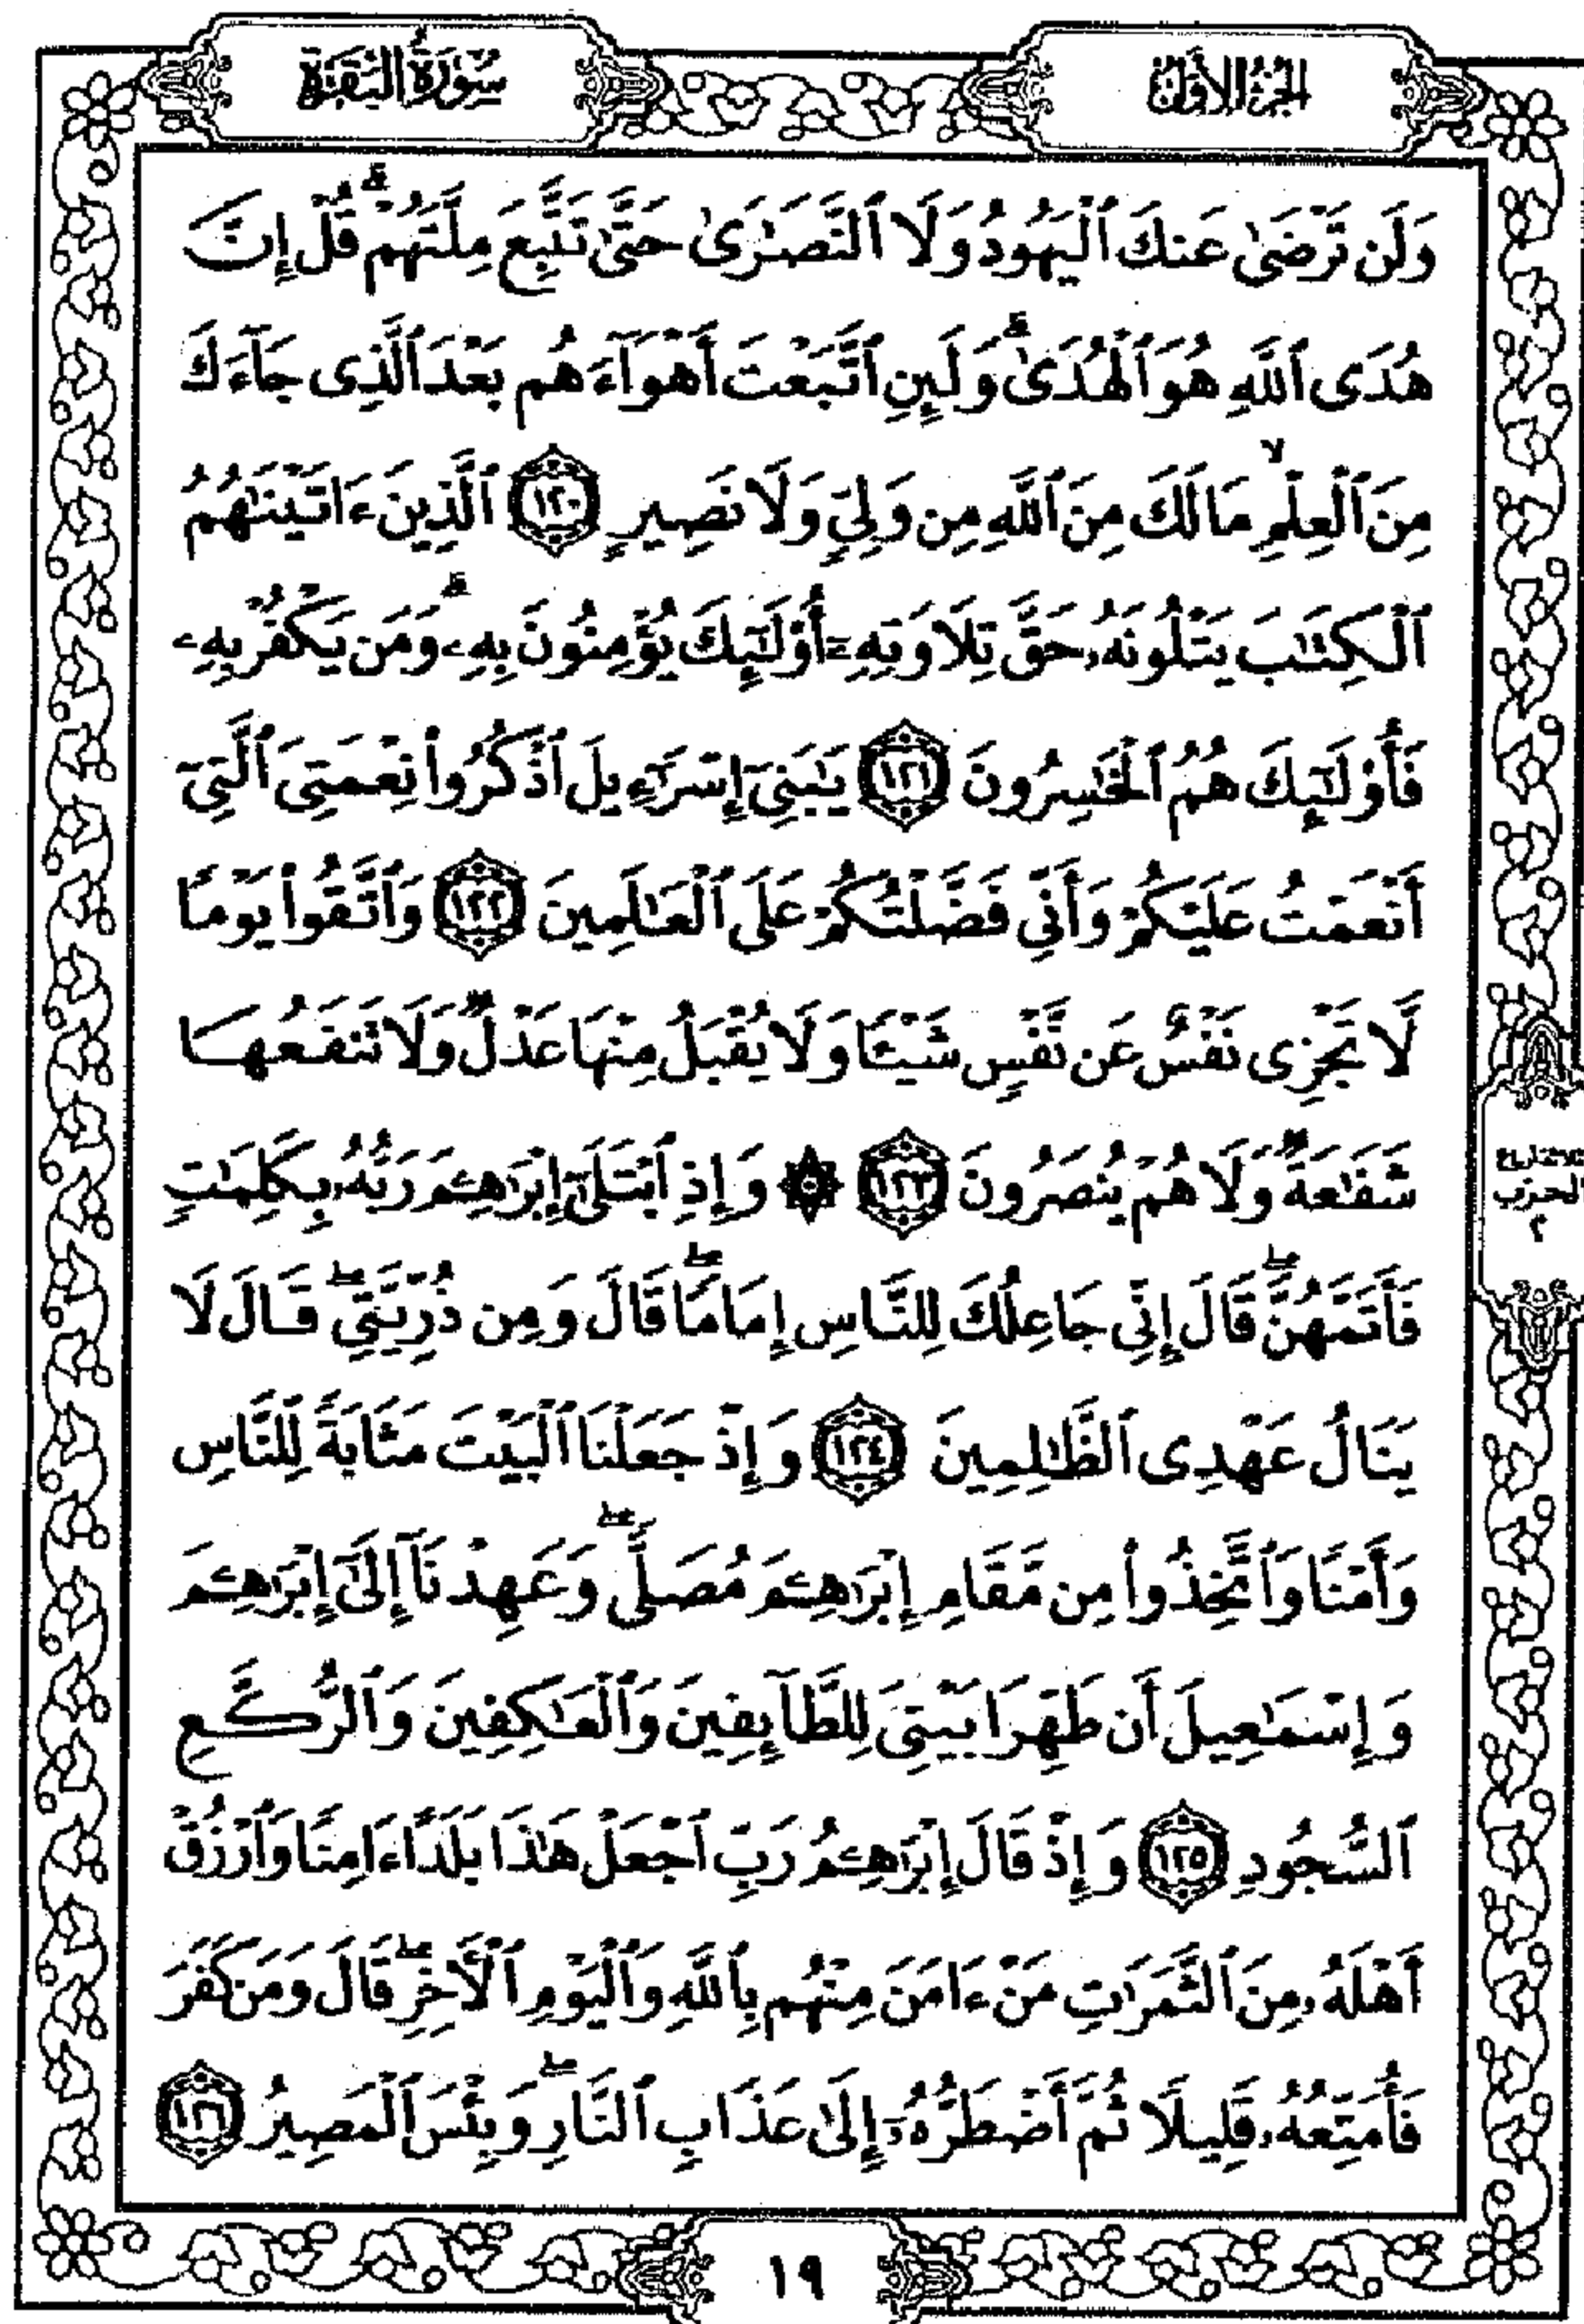 الجزء الأول
سورة البقرة
وَلَن تَرْضَىٰ عَنكَ ٱلْيَهُودُ وَلَا ٱلنَّصَٰرَىٰ حَتَّىٰ تَتَّبِعَ مِلَّتَهُمْ ۗ قُلْ إِنَّ
هُدَى ٱللَّهِ هُوَ ٱلْهُدَىٰ ۗ وَلَئِنِ ٱتَّبَعْتَ أَهْوَآءَهُم بَعْدَ ٱلَّذِى جَآءَكَ
مِنَ ٱلْعِلْمِ ۙ مَا لَكَ مِنَ ٱللَّهِ مِن وَلِىٍّ وَلَا نَصِيرٍ ١٢٠ ٱلَّذِينَ ءَاتَيْنَٰهُمُ
ٱلْكِتَٰبَ يَتْلُونَهُۥ حَقَّ تِلَاوَتِهِۦٓ أُو۟لَٰٓئِكَ يُؤْمِنُونَ بِهِۦ ۗ وَمَن يَكْفُرْ بِهِۦ
فَأُو۟لَٰٓئِكَ هُمُ ٱلْخَٰسِرُونَ ١٢١ يَٰبَنِىٓ إِسْرَٰٓءِيلَ ٱذْكُرُوا۟ نِعْمَتِىَ ٱلَّتِىٓ
أَنْعَمْتُ عَلَيْكُمْ وَأَنِّى فَضَّلْتُكُمْ عَلَى ٱلْعَٰلَمِينَ ١٢٢ وَٱتَّقُوا۟ يَوْمًا
لَّا تَجْزِى نَفْسٌ عَن نَّفْسٍ شَيْـًٔا وَلَا يُقْبَلُ مِنْهَا عَدْلٌ وَلَا تَنفَعُهَا
شَفَٰعَةٌ وَلَا هُمْ يُنصَرُونَ ١٢٣ ۞ وَإِذِ ٱبْتَلَىٰٓ إِبْرَٰهِـۧمَ رَبُّهُۥ بِكَلِمَٰتٍ
ثلاثة أرباع
الحزب
٢
فَأَتَمَّهُنَّ ۖ قَالَ إِنِّى جَاعِلُكَ لِلنَّاسِ إِمَامًا ۖ قَالَ وَمِن ذُرِّيَّتِى ۖ قَالَ لَا
يَنَالُ عَهْدِى ٱلظَّٰلِمِينَ ١٢٤ وَإِذْ جَعَلْنَا ٱلْبَيْتَ مَثَابَةً لِّلنَّاسِ
وَأَمْنًا وَٱتَّخِذُوا۟ مِن مَّقَامِ إِبْرَٰهِـۧمَ مُصَلًّى ۖ وَعَهِدْنَآ إِلَىٰٓ إِبْرَٰهِـۧمَ
وَإِسْمَٰعِيلَ أَن طَهِّرَا بَيْتِىَ لِلطَّآئِفِينَ وَٱلْعَٰكِفِينَ وَٱلرُّكَّعِ
ٱلسُّجُودِ ١٢٥ وَإِذْ قَالَ إِبْرَٰهِـۧمُ رَبِّ ٱجْعَلْ هَٰذَا بَلَدًا ءَامِنًا وَٱرْزُقْ
أَهْلَهُۥ مِنَ ٱلثَّمَرَٰتِ مَنْ ءَامَنَ مِنْهُم بِٱللَّهِ وَٱلْيَوْمِ ٱلْـَٔاخِرِ ۖ قَالَ وَمَن كَفَرَ
فَأُمَتِّعُهُۥ قَلِيلًا ثُمَّ أَضْطَرُّهُۥٓ إِلَىٰ عَذَابِ ٱلنَّارِ ۖ وَبِئْسَ ٱلْمَصِيرُ ١٢٦
١٩